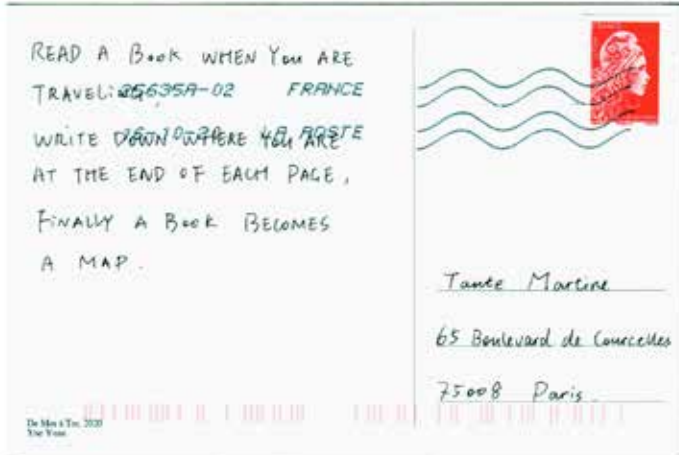 READ A Book WHEN You ARE
TRAVELiNG,
25635A-02 FRANCE
WRITE DOWN WHERE You ARE
16-10-20 LA POSTE
AT THE END OF EACH PAGE,
FiNALLY A Book BECOMES
A MAP.
FRANCE
Tante Martine
65 Boulevard de Courcelles
75008 Paris.
De Moi à Toi, 2020